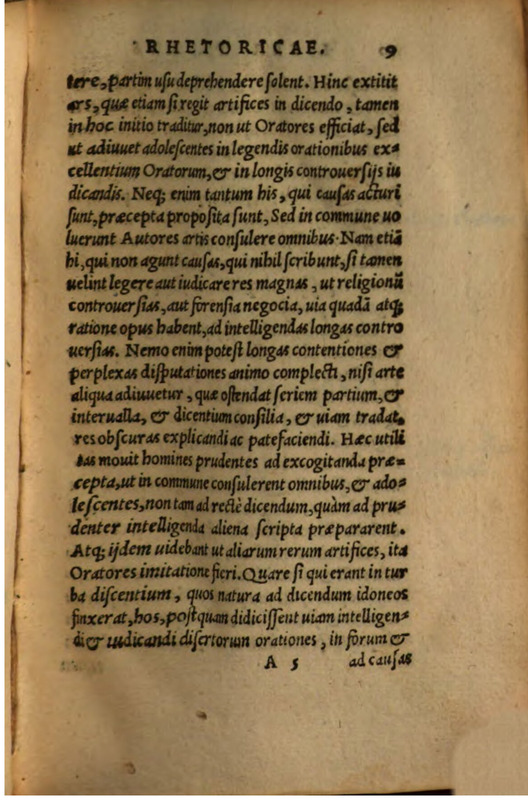 RHETORICAE. 9
tere, partim usu deprehendere solent. Hinc extitit
ars, quæ etiam si regit artifices in dicendo, tamen
in hoc initio traditur, non ut Oratores efficiat, sed
ut adiuuet adolescentes in legendis orationibus ex=
cellentium Oratorum, & in longis controuersijs iu
dicandis. Neq; enim tantum his, qui causas acturi
sunt, præcepta proposita sunt, Sed in commune uo
luerunt Autores artis consulere omnibus. Nam etiã
hi, qui non agunt causas, qui nihil scribunt, si tamen
uelint legere aut iudicare res magnas, ut religionũ
controuersias, aut forensia negocia, uia quadã atq;
ratione opus habent, ad intelligendas longas contro
uersias. Nemo enim potest longas contentiones &
perplexas disputationes animo complecti, nisi arte
aliqua adiuuetur, quæ ostendat seriem partium, &
interualla, & dicentium consilia, & uiam tradat,
res obscuras explicandi ac patefaciendi. Hæc utili
tas mouit homines prudentes ad excogitanda præ=
cepta, ut in commune consulerent omnibus, & ado=
lescentes, non tam ad rectè dicendum, quàm ad pru=
denter intelligenda aliena scripta præpararent.
Atq; ijdem uidebant ut aliarum rerum artifices, ita
Oratores imitatione fieri. Quare si qui erant in tur
ba discentium, quos natura ad dicendum idoneos
finxerat, hos, postquam didicissent uiam intelligen=
di & iudicandi disertorum orationes, in forum &
A 5 ad causas